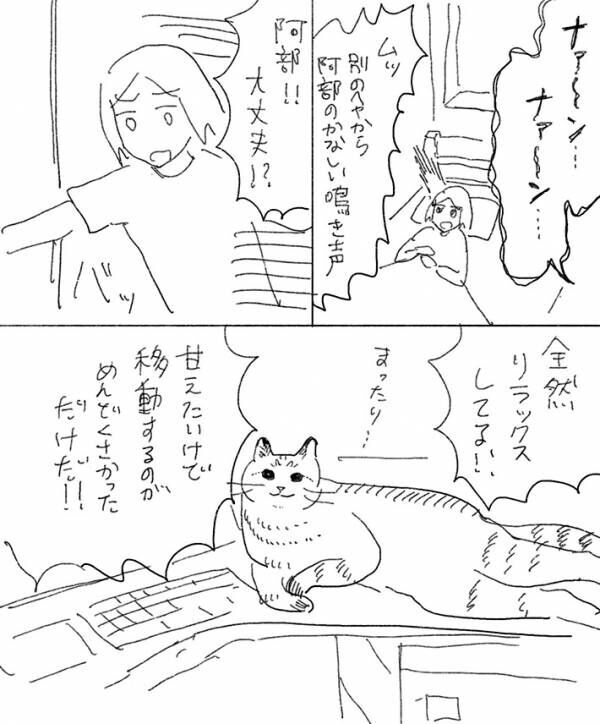 ナァ〜ン…
ナァ〜ン…
ムッ
別のへやから
阿部のかなしい鳴き声
阿部!!
大丈夫!?
バッ
全然
リラックス
してる!!
まったり…
甘えたいけど
移動するのが
めんどくさかった
だけだ!!